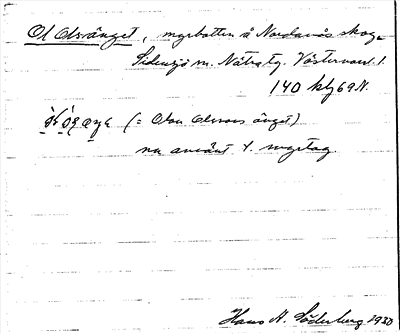 Ol Olsvänget, myrbotten å Nordanås skog.
Sidensjö sn. Nätra tg. Västernorrl. l.
140 kbg 69 N.
(= Olov Olssons änget)
nu använt t. myrtag.
Hans A. Söderberg 1930